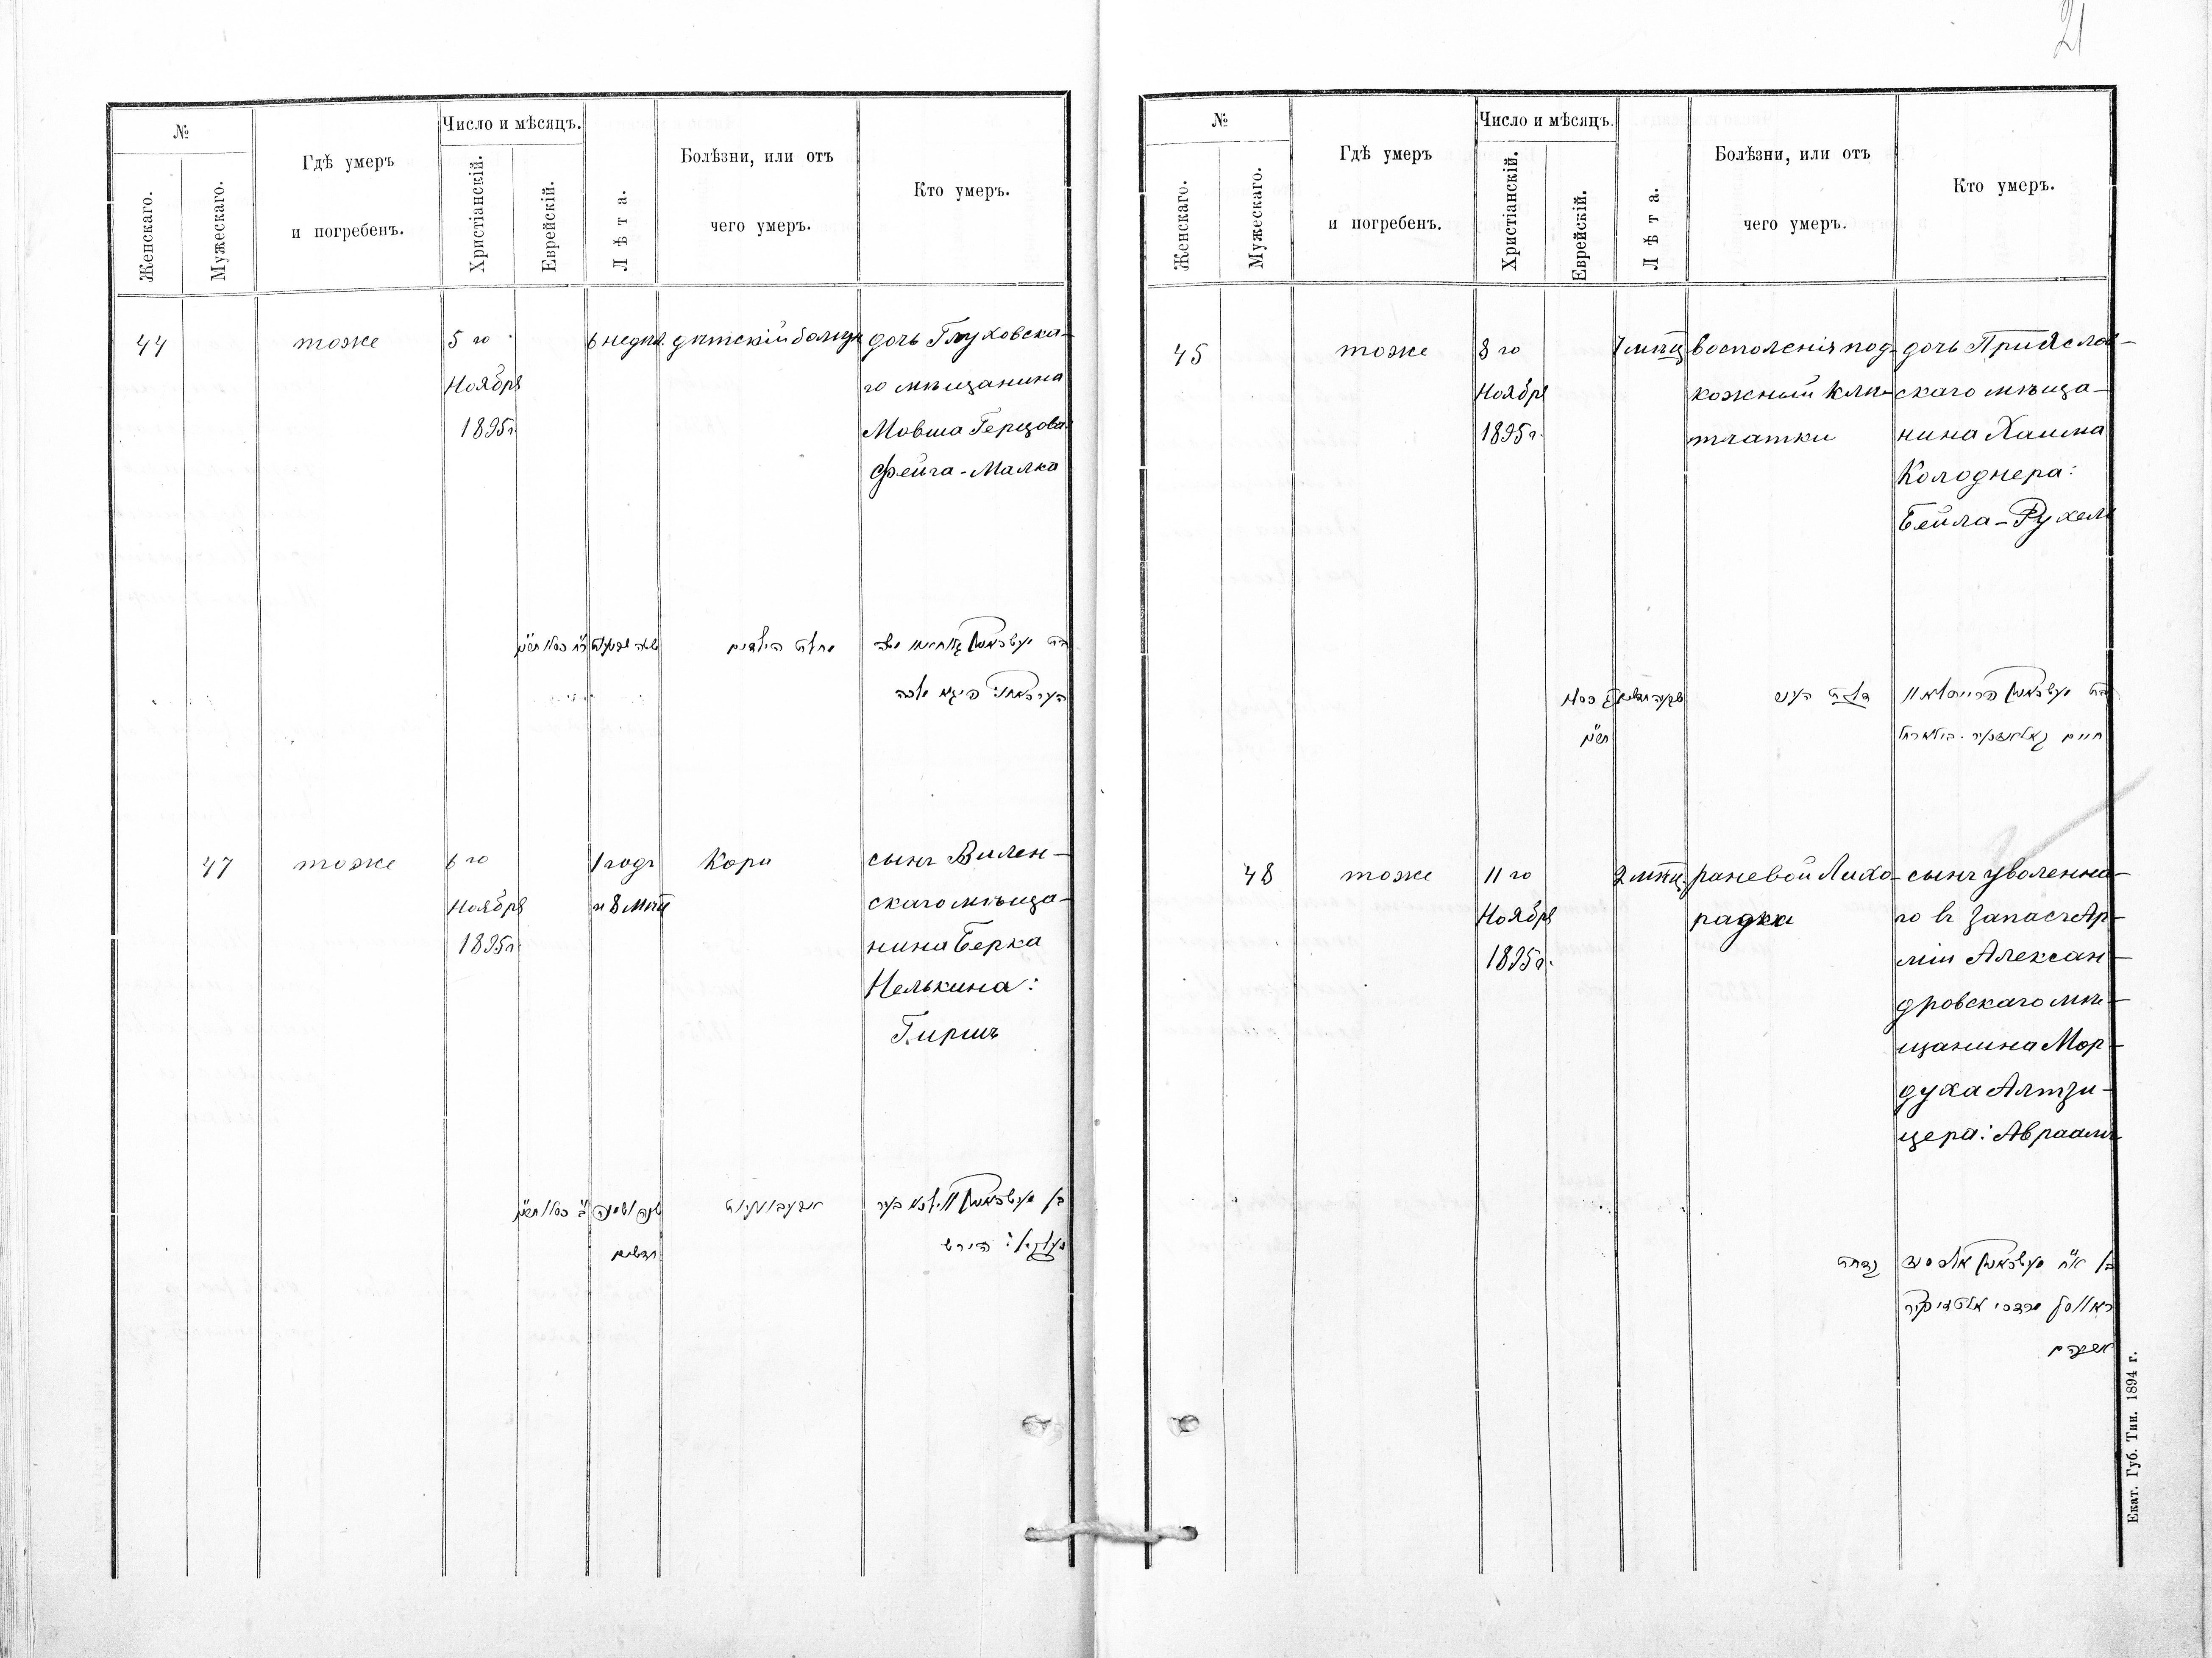 21
№
Женскаго.
Мужескаго.
Гдѣ умеръ
и погребенъ.
Число и мѣсяцъ.
Христіанскій.
Еврейскій.
Лѣта.
Болѣзни, или отъ
чего умеръ.
Кто умеръ.
44
тоже
5 го
Ноября
1895г.
6 недѣл.
дѣтскій
дочь Глуховска-
го мѣщанина
Мовша Герцова
Фейга-Малка
מחלת הילדים
47
тоже
6 го
Ноября
1895г.
1 годъ
и 8 мѣц
Кори
сынъ Вилен-
скаго мѣща-
нина Берка
Нелькина:
Гиршъ
שנה ושמנה
חדשים
הירש
№
Женскаго.
Мужескаго.
Гдѣ умеръ
и погребенъ.
Число и мѣсяцъ.
Христіанскій.
Еврейскій.
Лѣта.
Болѣзни, или отъ
чего умеръ.
Кто умеръ.
45
тоже
8 го
Ноября
1895г.
7 мѣц
восполенія под-
кожный клѣ-
тчатки
дочь Приясло-
скаго мѣща-
нина Хаима
Колоднера:
Бейла-Рухель
חיים
48
тоже
11 го
Ноября
1895г.
2 мѣц.
раневой Лихо-
радки
сынъ уволенна-
го въ Запасъ Ар-
міи Алексан-
дровскаго мѣ-
щанина Мор-
духа Алтзи-
цера: Авраамъ
קדחת
מרדכי
אברהם
Екат. Губ. Тип. 1894 г.